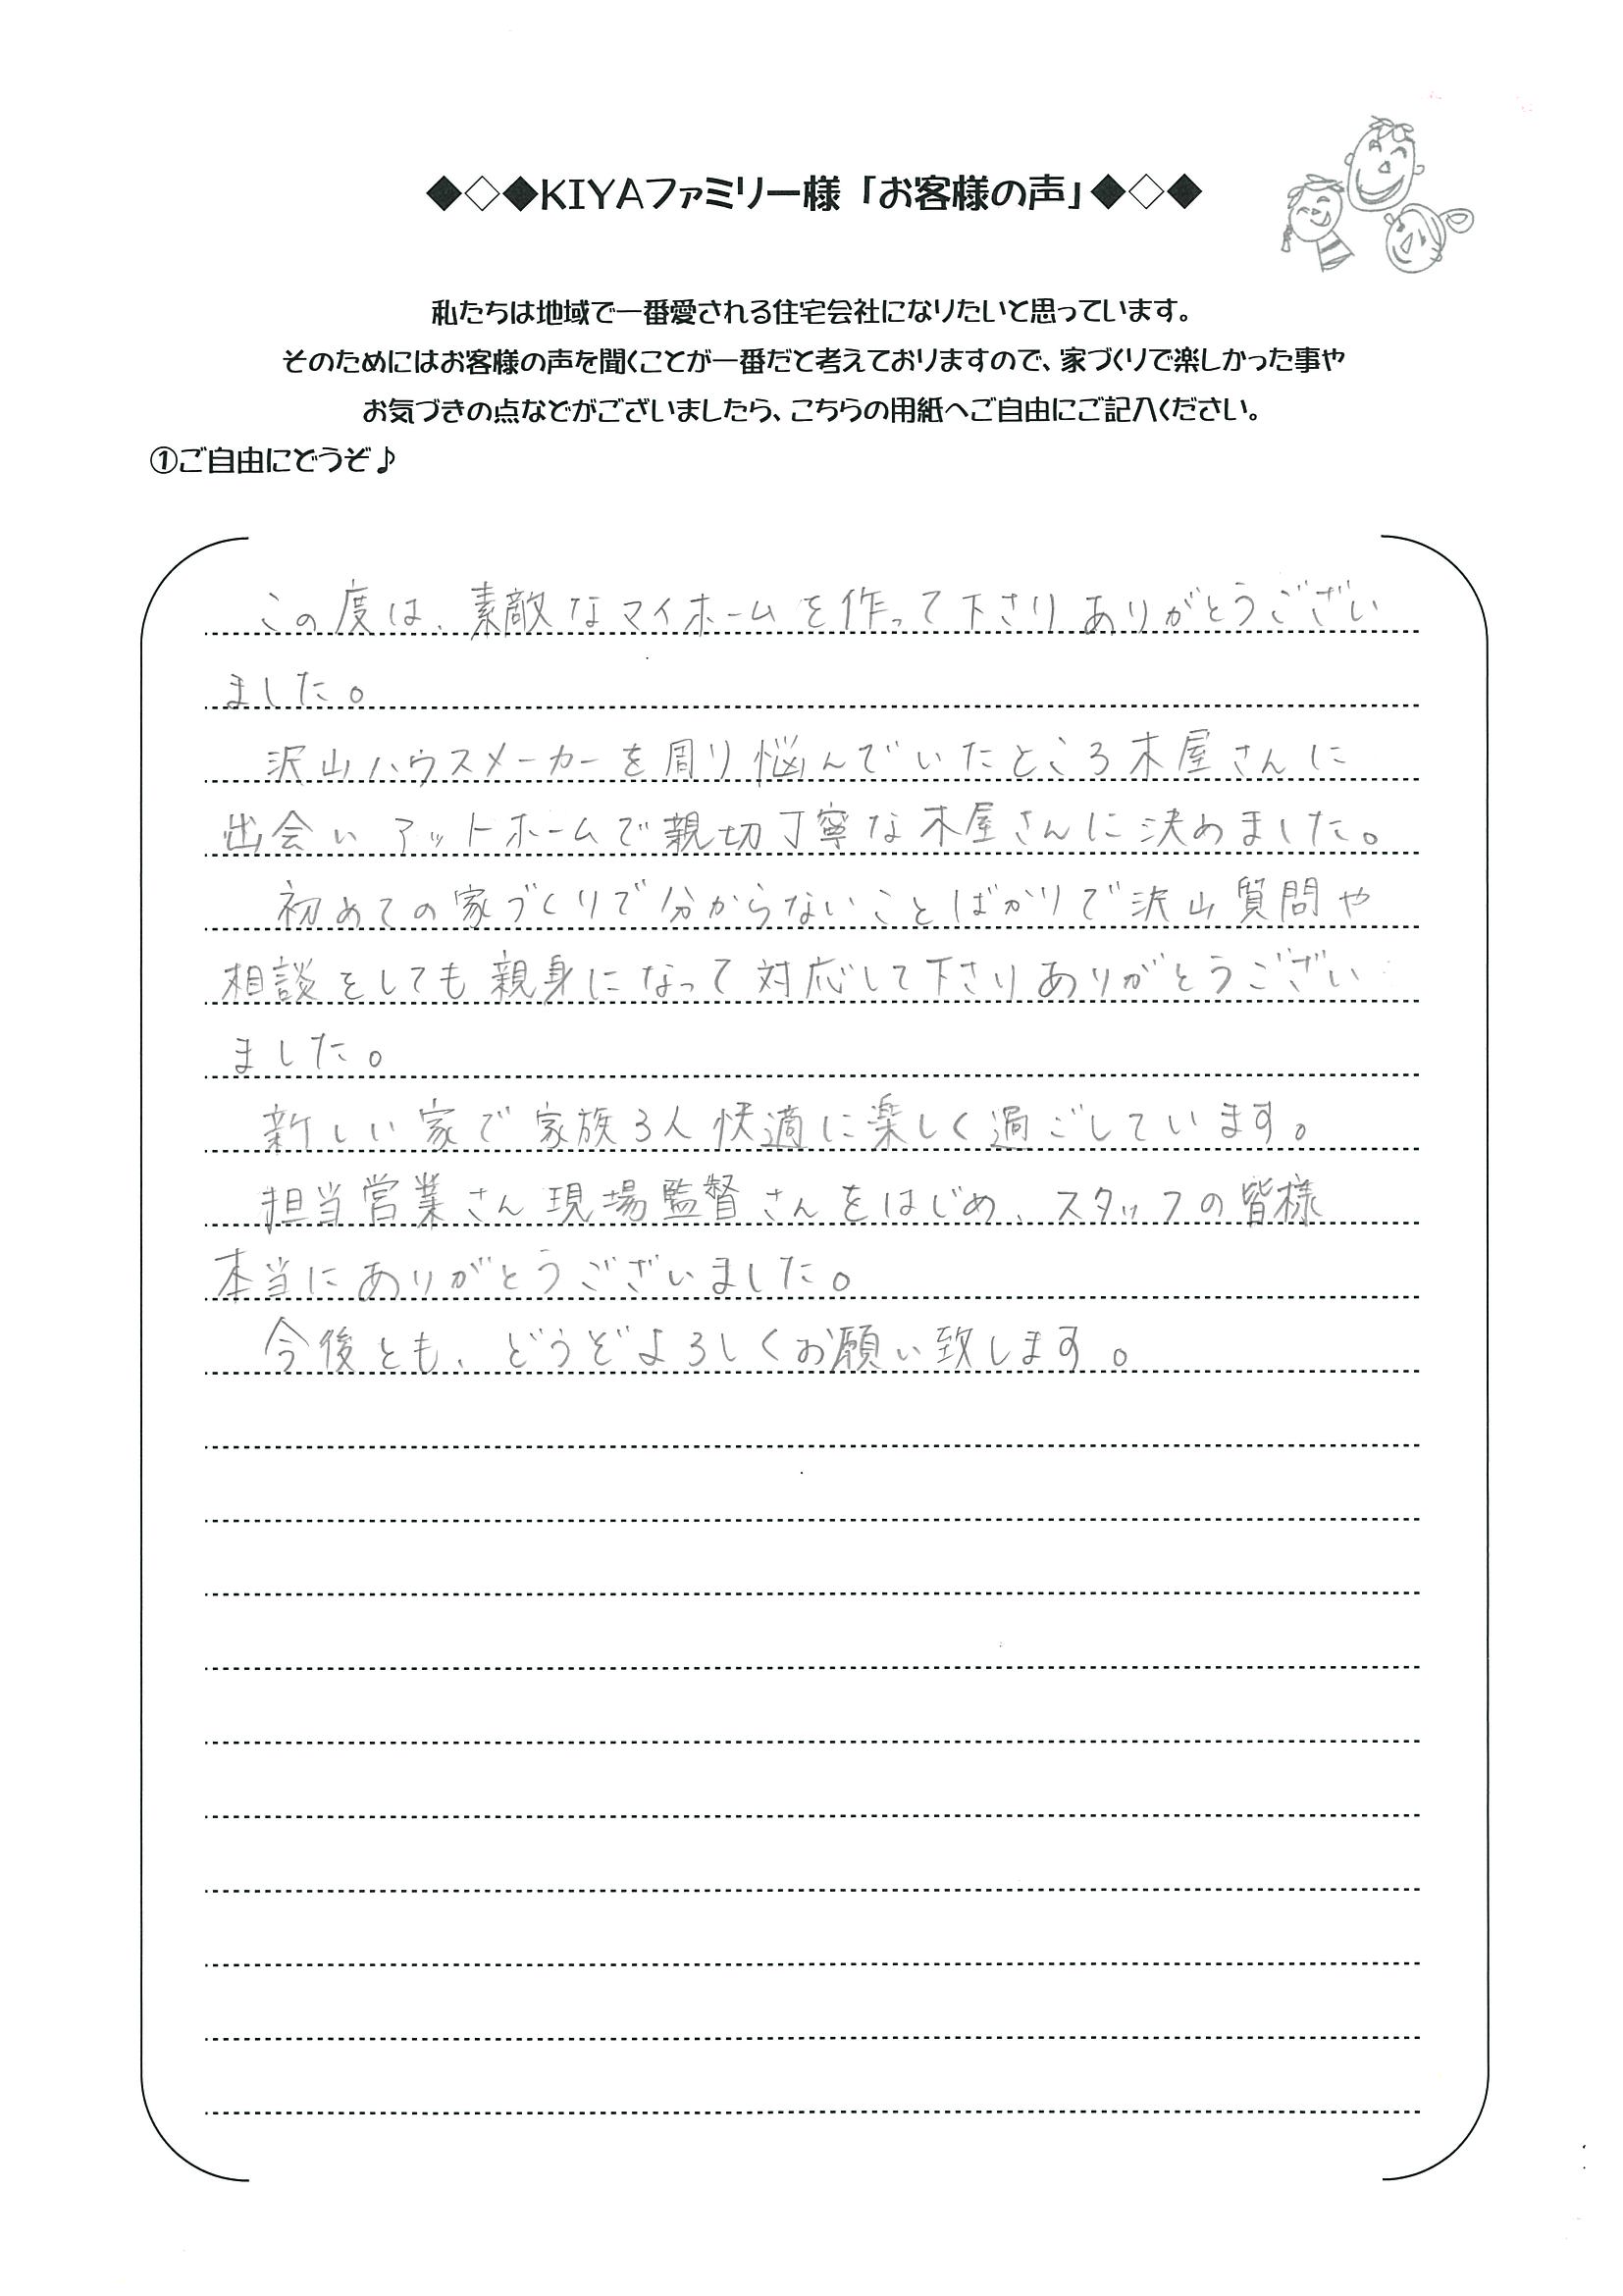 ◆◇◆KIYAファミリー様「お客様の声」◆◇◆
私たちは地域で一番愛される住宅会社になりたいと思っています。
そのためにはお客様の声を聞くことが一番だと考えておりますので、家づくりで楽しかった事や
お気づきの点などがございましたら、こちらの用紙へご自由にご記入ください。
①ご自由にどうぞ♪
この度は、素敵なマイホームを作って下さりありがとうござい
ました。
沢山ハウスメーカーを周り悩んでいたところ木屋さんに
出会いアットホームで親切丁寧な木屋さんに決めました。
初めての家づくりで分からないことばかりで沢山質問や
相談をしても親身になって対応して下さりありがとうござい
ました。
新しい家で家族3人快適に楽しく過ごしています。
担当営業さん現場監督さんをはじめ、スタッフの皆様
本当にありがとうございました。
今後とも、どうぞよろしくお願い致します。